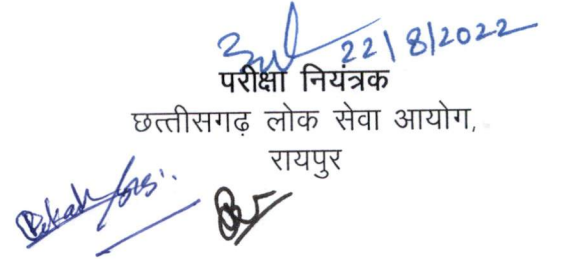 22/8/2022
परीक्षा नियंत्रक
छत्तीसगढ़ लोक सेवा आयोग,
रायपुर